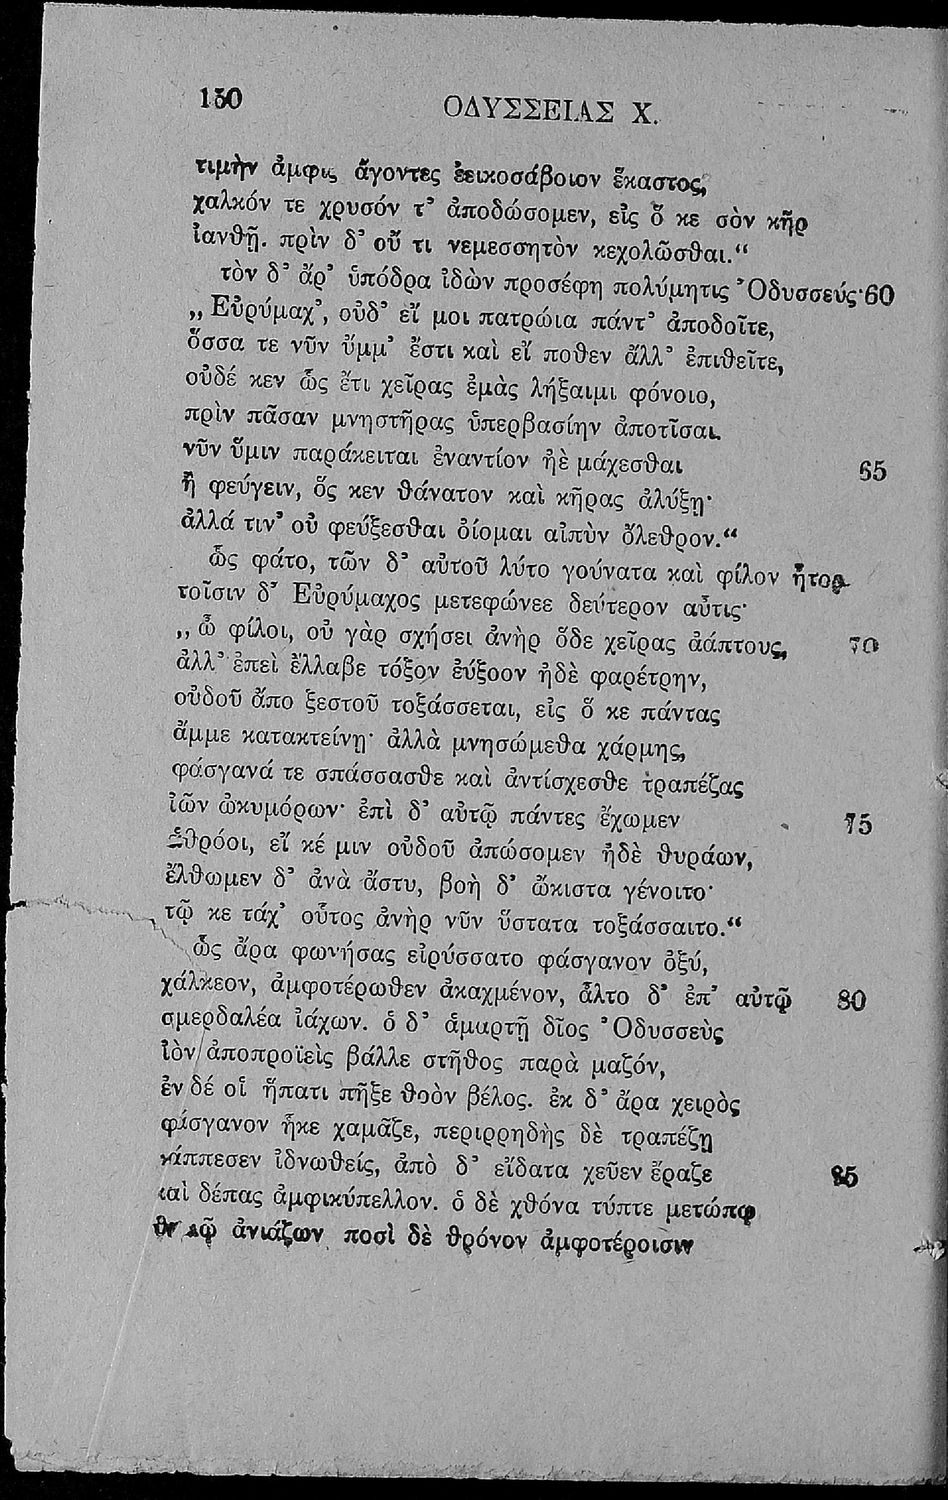 150
ΟΔΥΣΣΕΙΑΣ Χ.
τιμὴν ἀμφὶς ἄγοντες ἐεικοσάβοιον ἕκαστος,
χαλκόν τε χρυσόν τ’ ἀποδώσομεν, εἰς ὅ κε σὸν κῆρ
ἰανθῇ. πρὶν δ’ οὔ τι νεμεσσητὸν κεχολῶσθαι.“
τὸν δ’ ἄρ’ ὑπόδρα ἰδὼν προσέφη πολύμητις Ὀδυσσεύς· 60
„Εὐρύμαχ’, οὐδ’ εἴ μοι πατρώια πάντ’ ἀποδοῖτε,
ὅσσα τε νῦν ὔμμ’ ἔστι καὶ εἴ ποθεν ἄλλ’ ἐπιθεῖτε,
οὐδέ κεν ὣς ἔτι χεῖρας ἐμὰς λήξαιμι φόνοιο,
πρὶν πᾶσαν μνηστῆρας ὑπερβασίην ἀποτῖσαι.
νῦν ὕμιν παράκειται ἐναντίον ἠὲ μάχεσθαι 65
ἢ φεύγειν, ὅς κεν θάνατον καὶ κῆρας ἀλύξῃ·
ἀλλά τιν’ οὐ φεύξεσθαι ὀίομαι αἰπὺν ὄλεθρον.“
ὣς φάτο, τῶν δ’ αὐτοῦ λύτο γούνατα καὶ φίλον ἦτορ.
τοῖσιν δ’ Εὐρύμαχος μετεφώνεε δεύτερον αὖτις·
„ὦ φίλοι, οὐ γὰρ σχήσει ἀνὴρ ὅδε χεῖρας ἀάπτους, 70
ἀλλ’ ἐπεὶ ἔλλαβε τόξον ἐύξοον ἠδὲ φαρέτρην,
οὐδοῦ ἄπο ξεστοῦ τοξάσσεται, εἰς ὅ κε πάντας
ἄμμε κατακτείνῃ· ἀλλὰ μνησώμεθα χάρμης,
φάσγανά τε σπάσσασθε καὶ ἀντίσχεσθε τραπέζας
ἰῶν ὠκυμόρων· ἐπὶ δ’ αὐτῷ πάντες ἔχωμεν 75
ἀθρόοι, εἴ κέ μιν οὐδοῦ ἀπώσομεν ἠδὲ θυράων,
ἔλθωμεν δ’ ἀνὰ ἄστυ, βοὴ δ’ ὤκιστα γένοιτο·
τῷ κε τάχ’ οὗτος ἀνὴρ νῦν ὕστατα τοξάσσαιτο.“
ὣς ἄρα φωνήσας εἰρύσσατο φάσγανον ὀξύ,
χάλκεον, ἀμφοτέρωθεν ἀκαχμένον, ἆλτο δ’ ἐπ’ αὐτῷ 80
σμερδαλέα ἰάχων. ὁ δ’ ἁμαρτῇ δῖος Ὀδυσσεὺς
ἰὸν ἀποπροϊεὶς βάλλε στῆθος παρὰ μαζόν,
ἐν δέ οἱ ἥπατι πῆξε θοὸν βέλος. ἐκ δ’ ἄρα χειρὸς
φάσγανον ἧκε χαμᾶζε, περιρρηδὴς δὲ τραπέζῃ
κάππεσεν ἰδνωθείς, ἀπὸ δ’ εἴδατα χεῦεν ἔραζε 85
καὶ δέπας ἀμφικύπελλον. ὁ δὲ χθόνα τύπτε μετώπῳ
θυμῷ ἀνιάζων, ποσὶ δὲ θρόνον ἀμφοτέροισιν